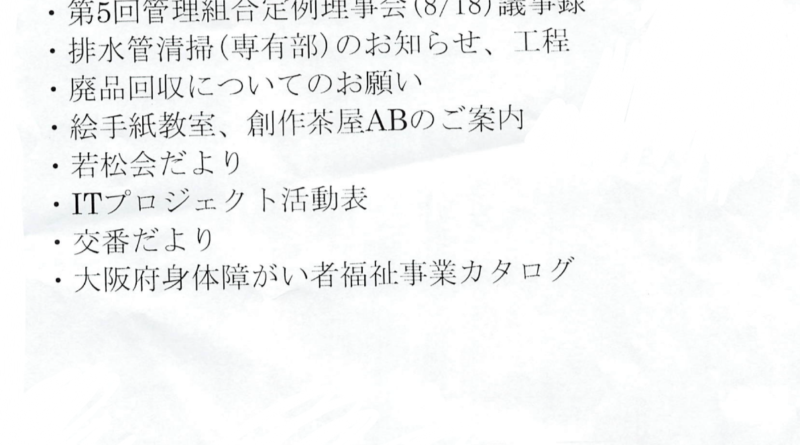 ・第5回管理組合定例理事会(8/18)議事録
・排水管清掃(専有部)のお知らせ、工程
・廃品回収についてのお願い
・絵手紙教室、創作茶屋ABのご案内
・若松会だより
・ITプロジェクト活動表
・交番だより
・大阪府身体障がい者福祉事業カタログ